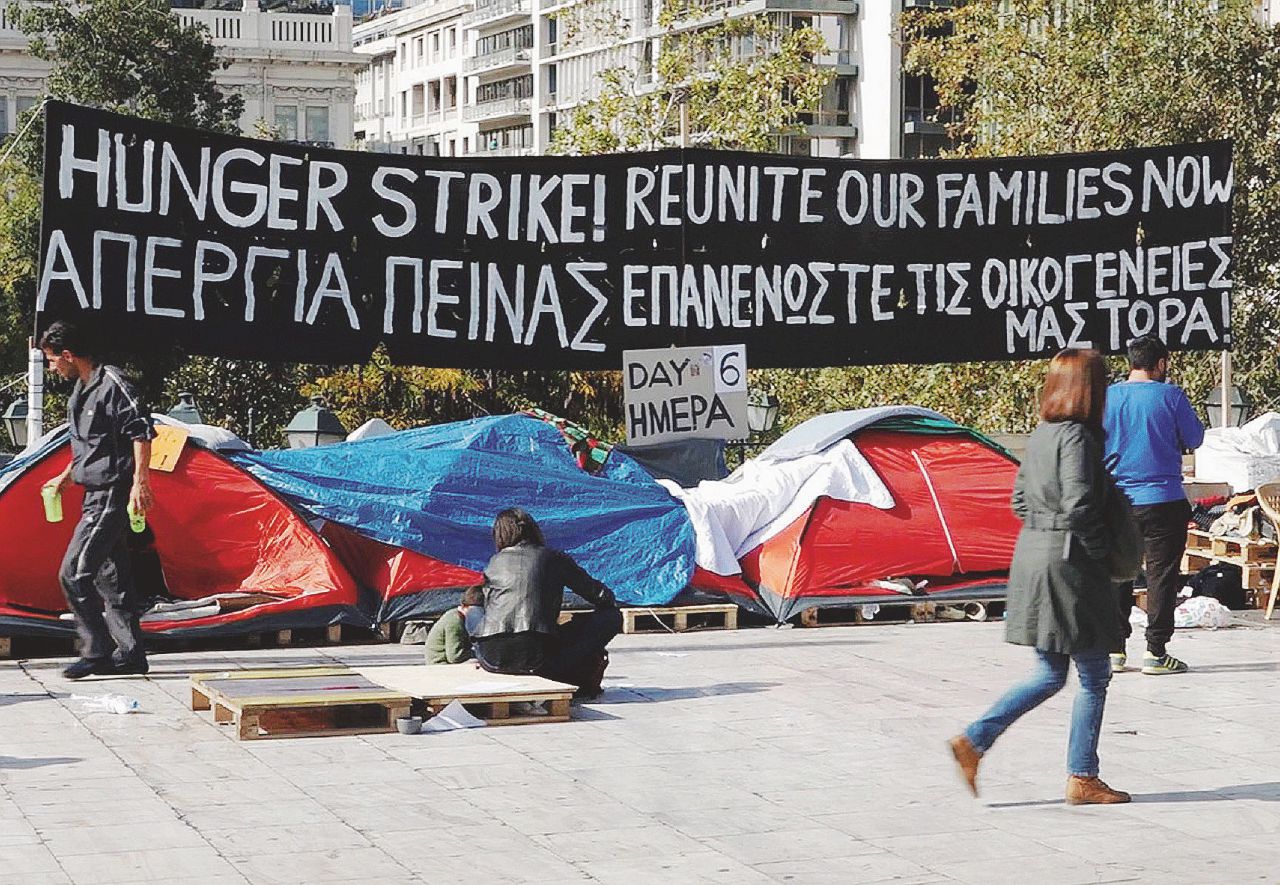 HUNGER STRIKE! REUNITE OUR FAMILIES NOW
ΑΠΕΡΓΙΑ ΠΕΙΝΑΣ ΕΠΑΝΕΝΩΣΤΕ ΤΙΣ ΟΙΚΟΓΕΝΕΙΕΣ
ΜΑΣ ΤΩΡΑ!
DAY 6
ΗΜΕΡΑ